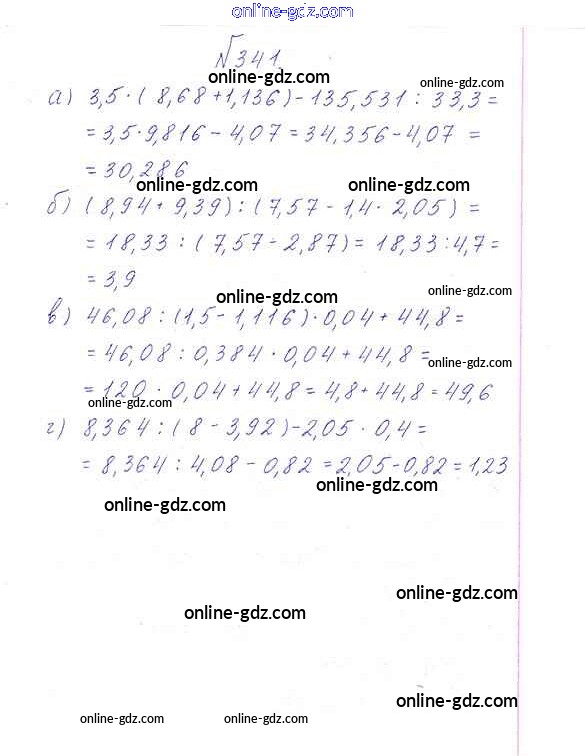 online-gdz.com
№341.
online-gdz.com
online-gdz.com
а) 3,5·(8,68+1,136)-135,531:33,3=
=3,5·9,816-4,07=34,356-4,07 =
=30,286
online-gdz.com
online-gdz.com
б) (8,94+9,39):(7,57-1,4·2,05)=
=18,33:(7,57-2,87)=18,33:4,7=
=3,9
online-gdz.com
online-gdz.com
в) 46,08:(1,5-1,116)·0,04+44,8=
=46,08:0,384·0,04+44,8=
online-gdz.com
=120·0,04+44,8=4,8+44,8=49,6
online-gdz.com
г) 8,364:(8-3,92)-2,05·0,4=
=8,364:4,08-0,82=2,05-0,82=1,23
online-gdz.com
online-gdz.com
online-gdz.com
online-gdz.com
online-gdz.com
online-gdz.com
online-gdz.com